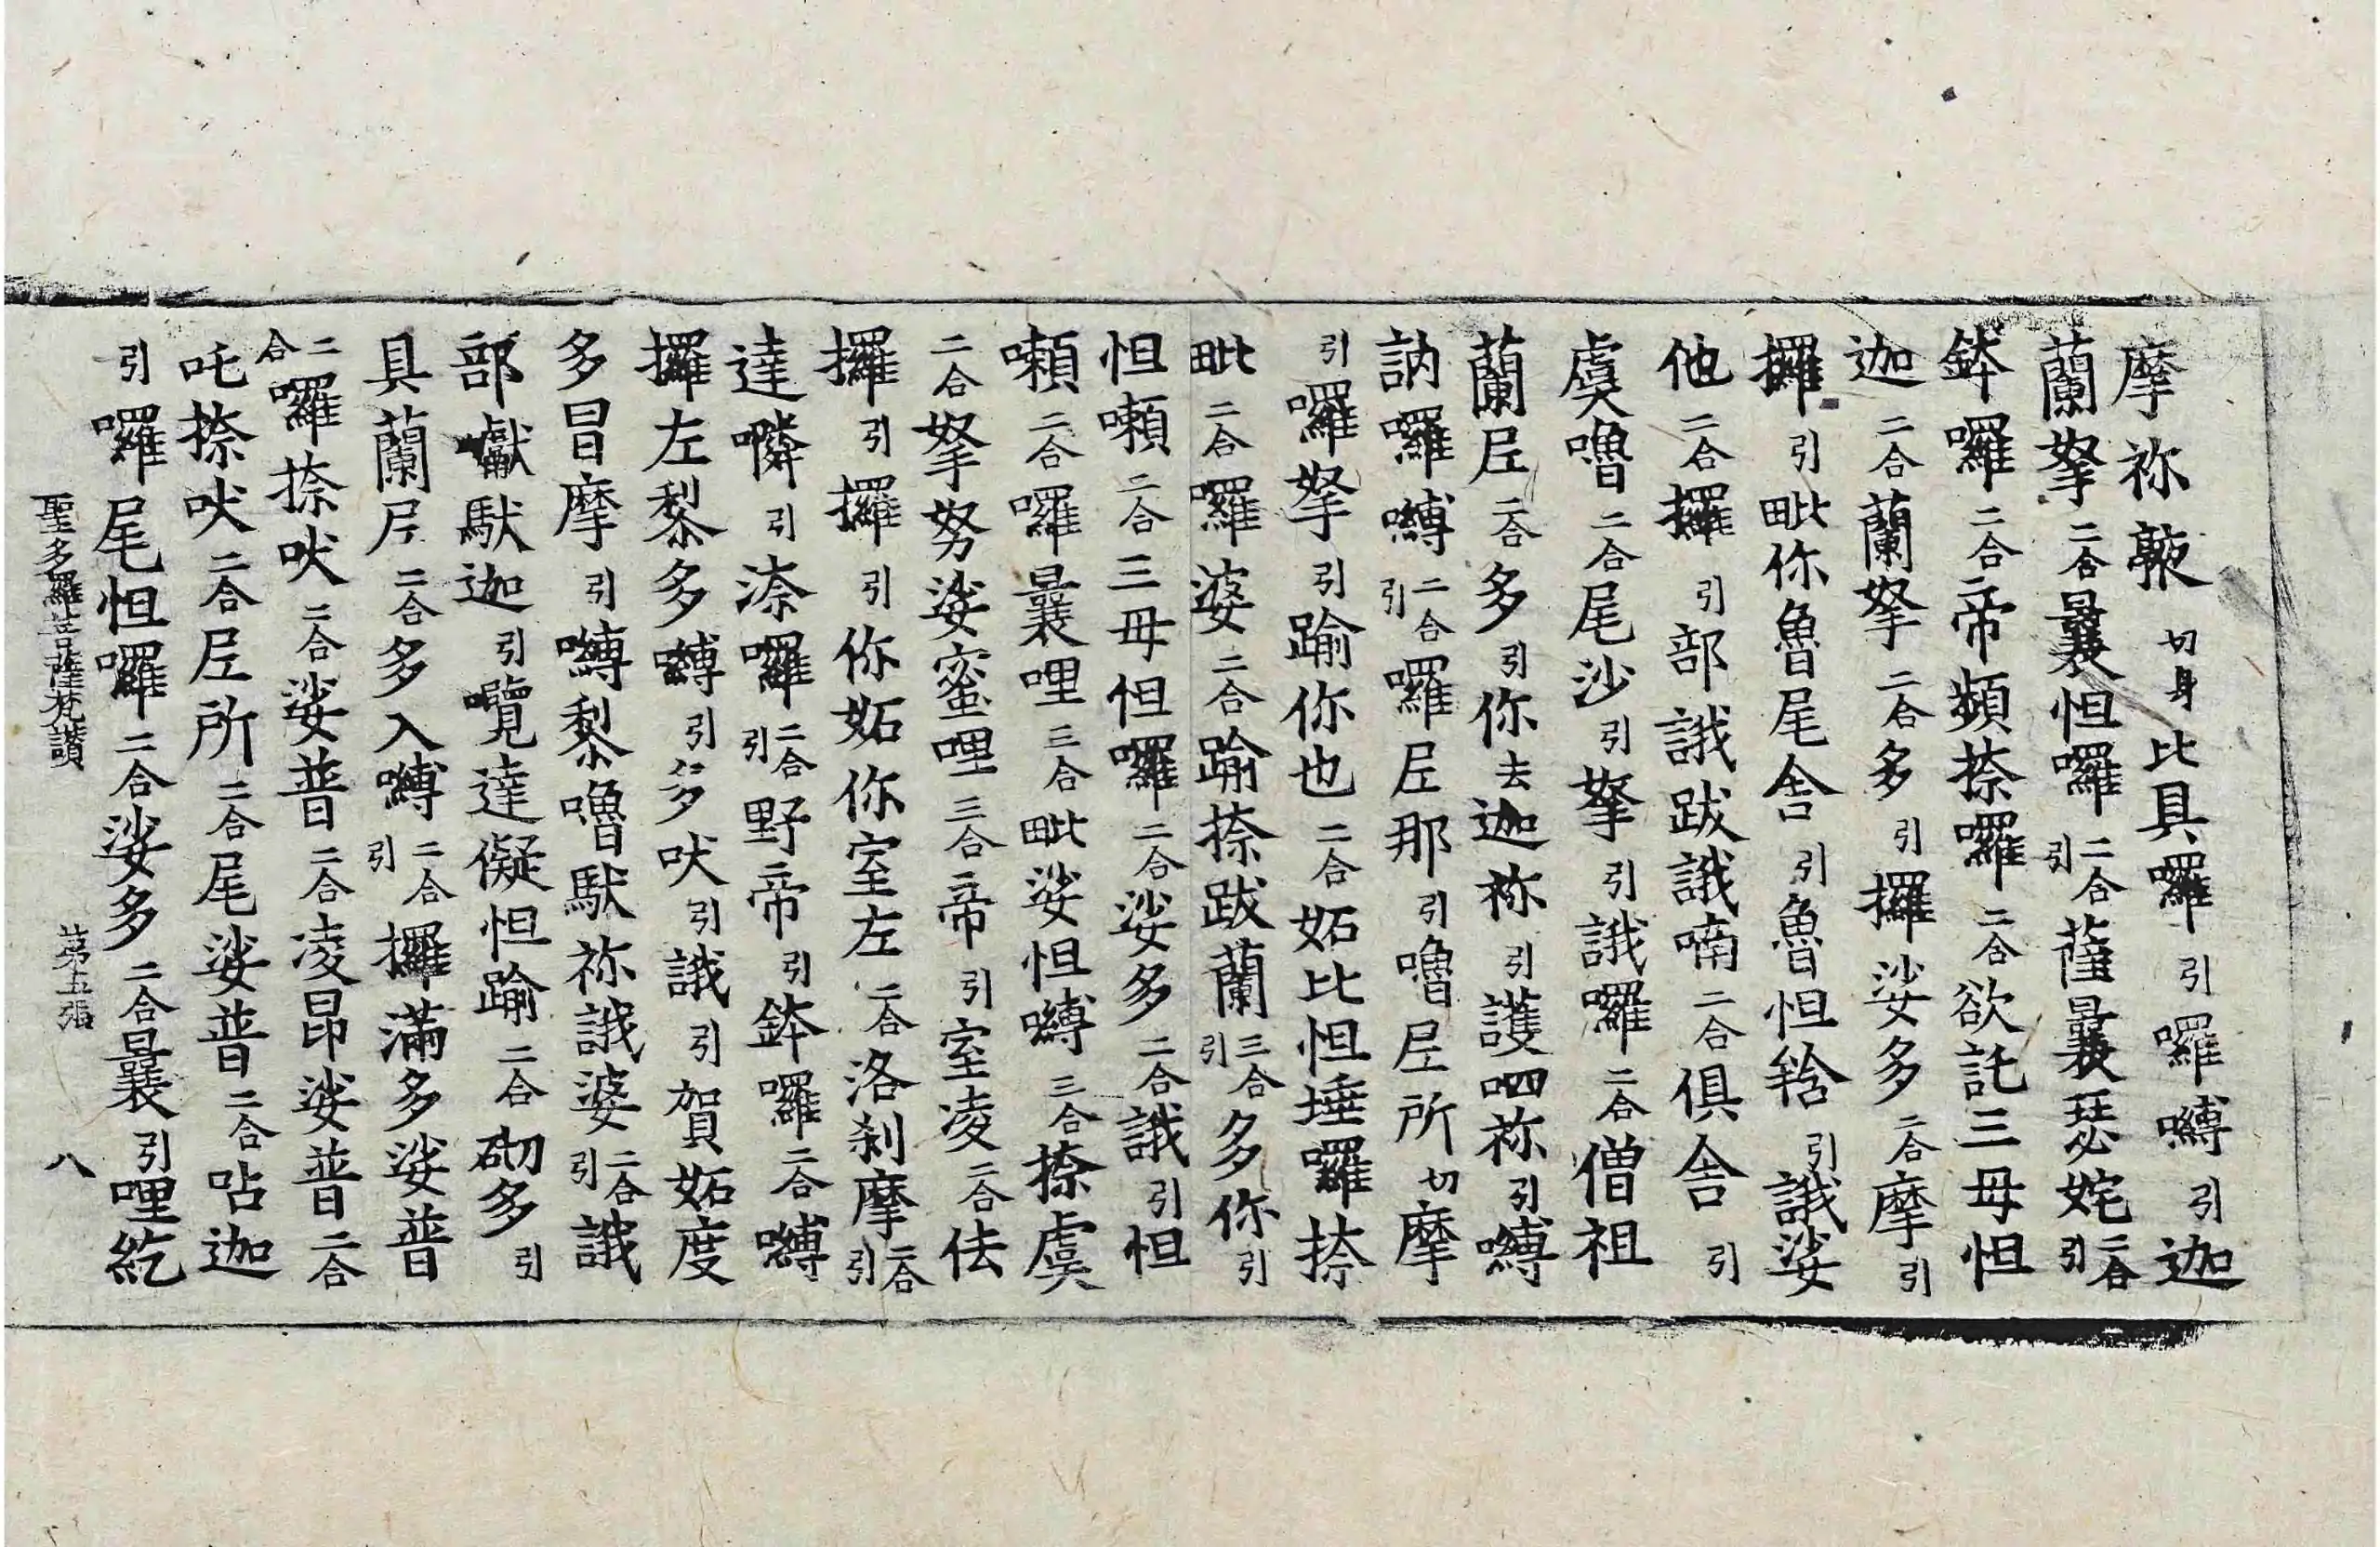 摩祢𭌆切身比具囉引囉嚩引迦
蘭拏二合曩怛囉二合引薩曩瑟姹二合引
鉢囉二合帝頻捺囉二合欲訖三母怛
迦二合蘭拏二合多引攞娑多二合摩引
攞引毗你魯尾舍引魯怛鞳引誐娑
他二合攞引部誐跋誐喃二合俱舍引
虞嚕二合尾沙引拏引誐囉二合僧祖
蘭𡰱二合多引你去迦祢引護呬祢引嚩
訥囉嚩二合引囉𡰱那引嚕𡰱所切摩
引囉拏引踰你也二合妬比怛埵囉捺
毗二合囉婆二合踰捺跋蘭三合引多你引
怛嚩二合三母怛囉二合娑多二合誐引怛
嚩二合囉曩哩三合毗娑怛嚩三合捺虞
二合拏努娑蜜哩三合帝引室凌二合佉
攞引攞引你妬你室左二合洛刹摩二合引
達嶙引渿囉二合引野帝引鉢囉二合嚩
攞左黎多嚩引多吠引誐引賀妬度
多冒摩引嚩黎嚕馱祢誐婆二合引誐
部𪑛馱迦引囕達儗怛踰二合砌多引
具蘭𡰱二合多入嚩二合引攞滿多娑普
二合囉捺吠二合娑普二合凌昂娑普二合
吒捺吠二合𡰱所二合尾娑普二合呫迦
引囉尾怛囉二合娑多二合曩引哩紇
聖多羅菩薩梵讚 第五張 八